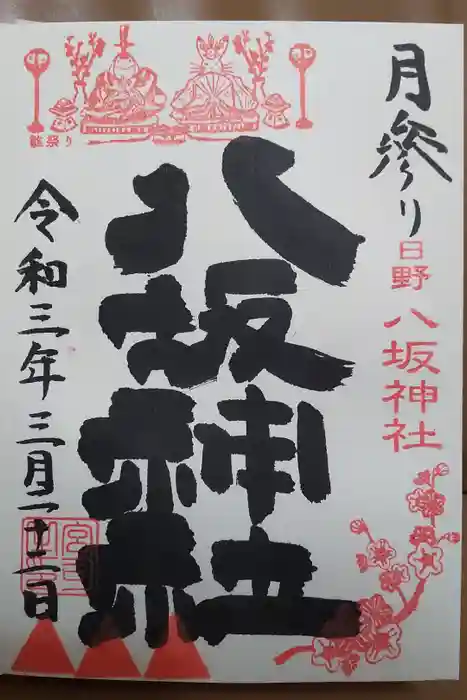 月参り
日野
八坂神社
八坂神社
雛祭り
令和三年三月二十二日